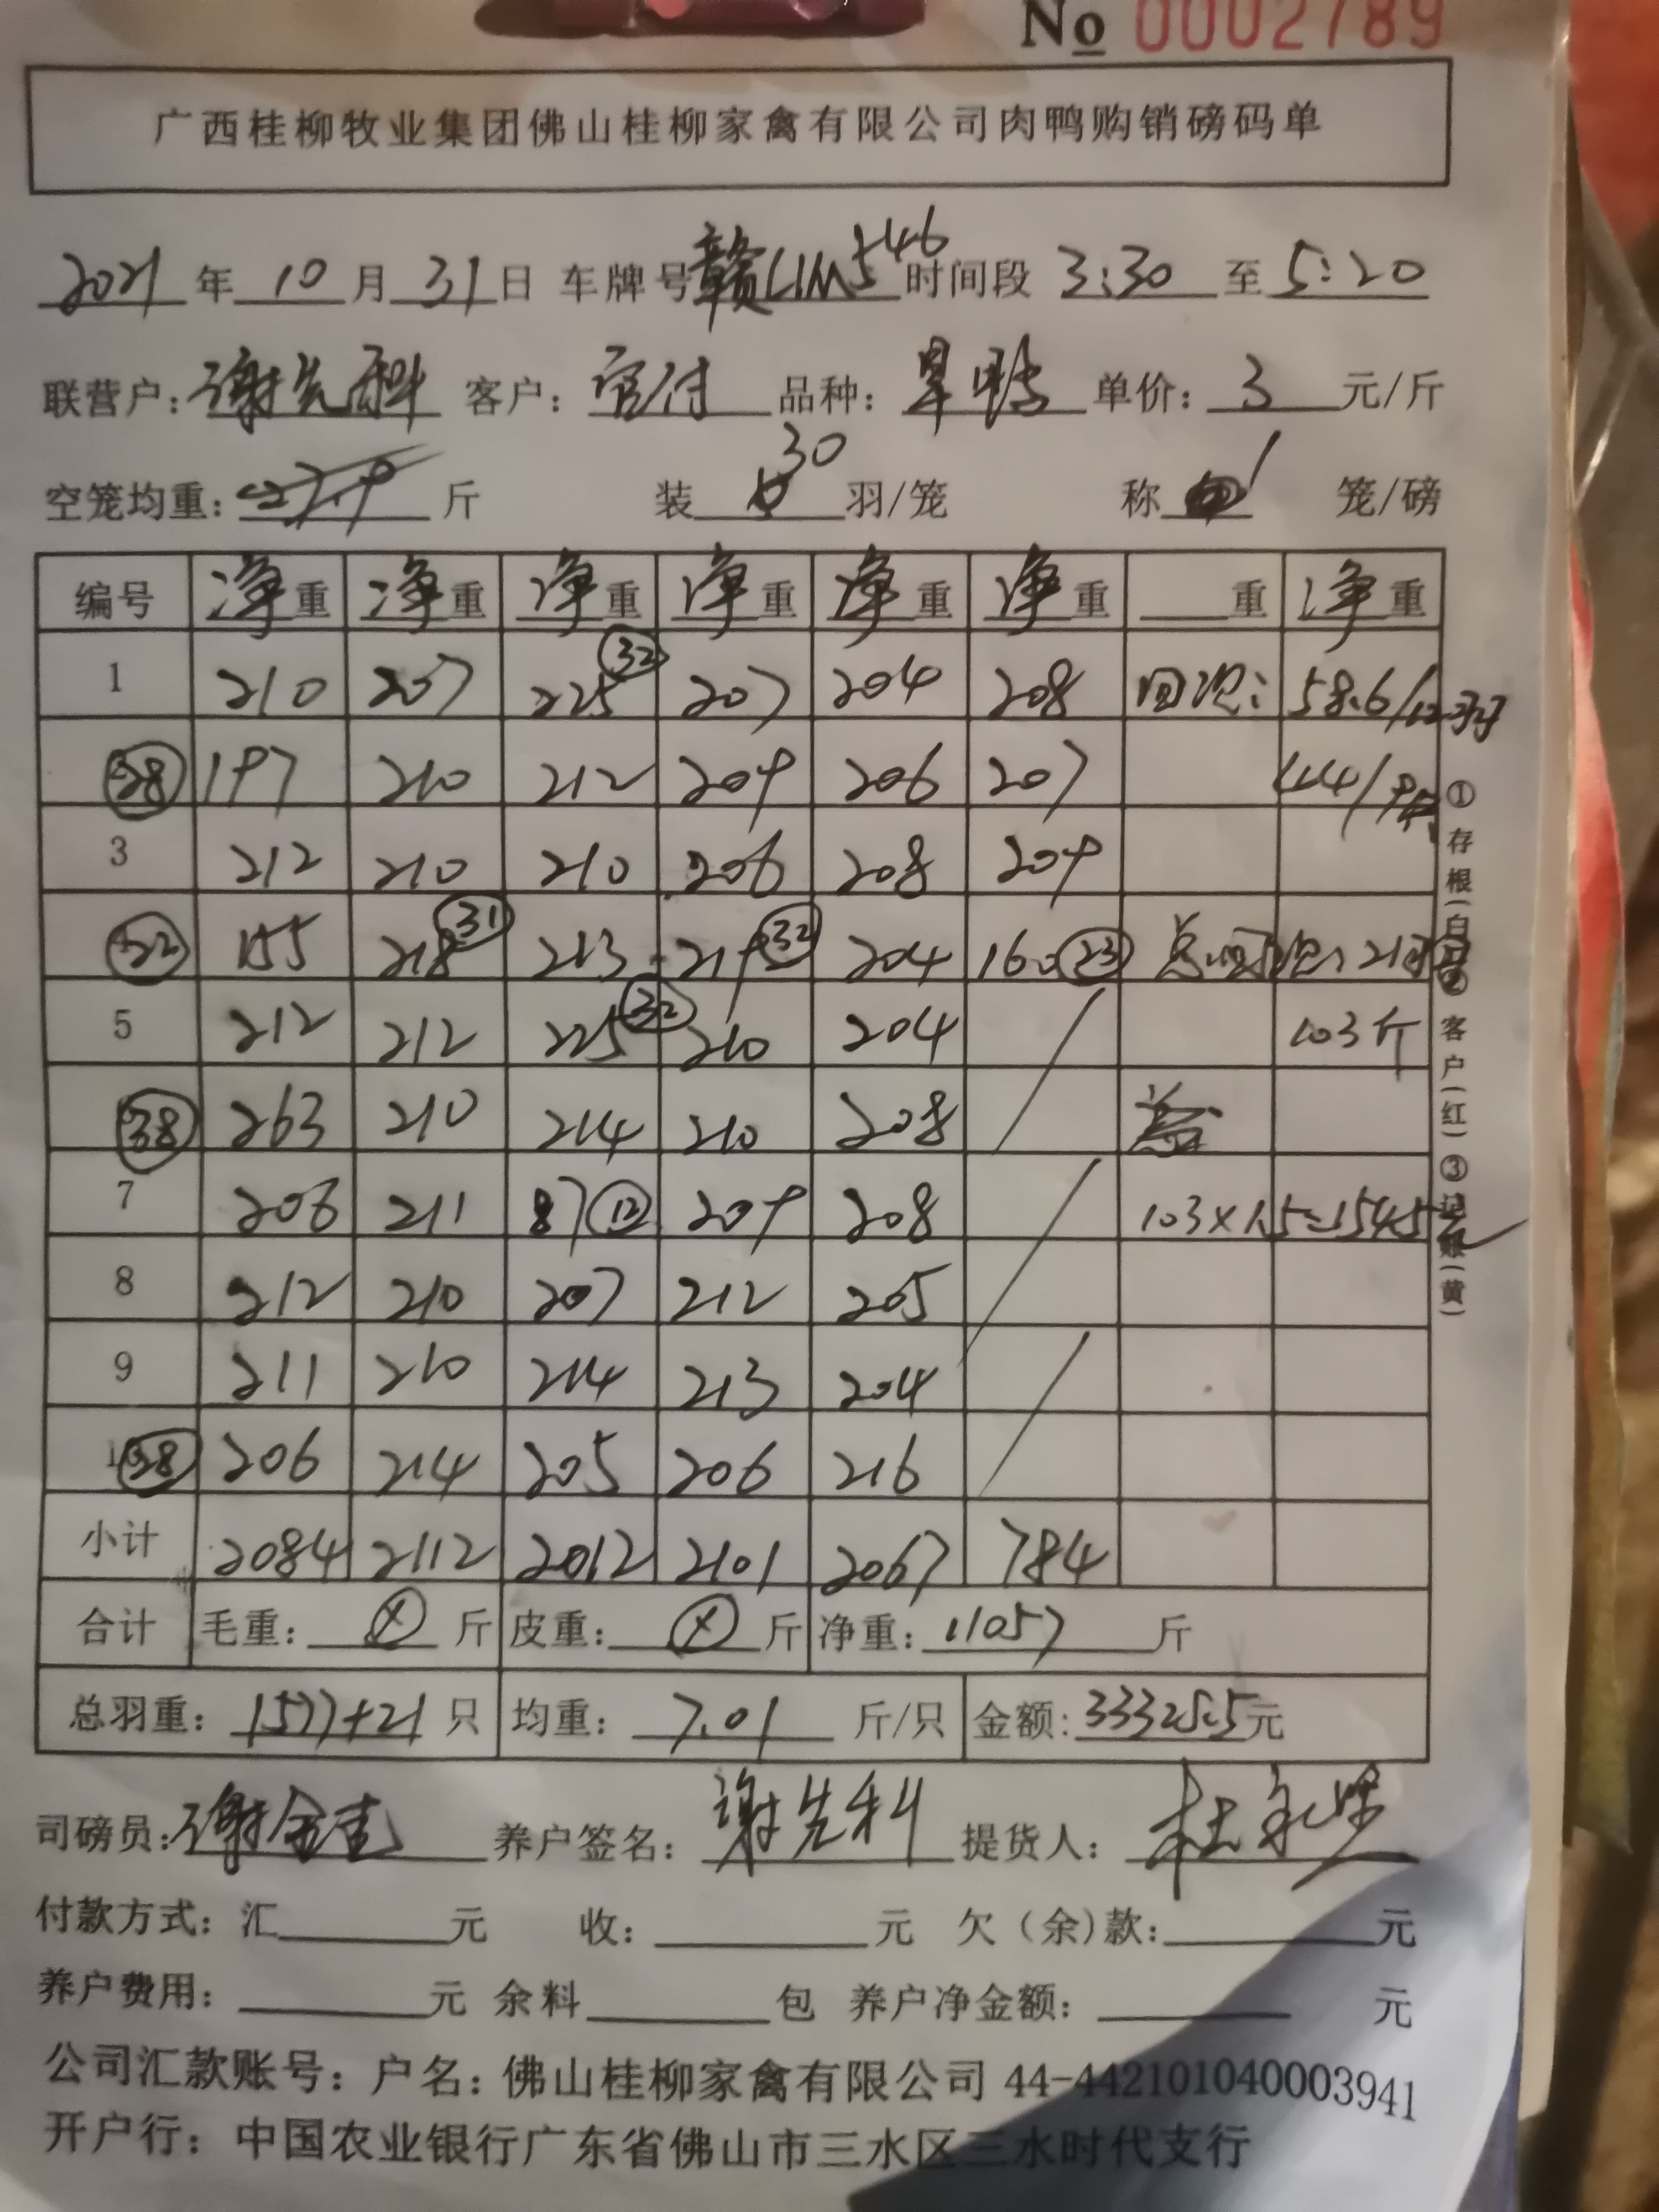 No 0002789
广西桂柳牧业集团佛山桂柳家禽有限公司肉鸭购销磅码单
2021年10月31日 车牌号赣L1M546 时间段 3:30 至 5:20
联营户：谢先科 客户：官付 品种：旱鸭 单价：3元/斤
空笼均重： 斤 装30羽/笼 称1笼/磅
编号 净重 净重 净重 净重 净重 净重 重 净重
1 210 207 225 (32) 207 204 208 回次: 58.6/12羽
(28) 197 210 212 209 206 207 44.4/9只
3 212 210 210 206 208 209
(22) 155 218 (31) 213 219 (32) 204 160 (23) 总回次: 21羽
5 212 212 225 (32) 210 204 103斤
(38) 263 210 214 210 208
7 206 211 87 (12) 209 208 103×1.5=154.5元
8 212 210 207 212 205
9 211 210 214 213 204
(28) 206 214 205 206 216
小计 2084 2112 2012 2101 2067 784
合计 毛重：ⓧ斤 皮重：ⓧ斤 净重：11057斤
总羽重：1577+21只 均重：7.01斤/只 金额：33325.5元
司磅员：谢金 养户签名：谢先科 提货人：杜永
付款方式：汇 元 收： 元 欠（余）款： 元
养户费用： 元 余料 包 养户净金额： 元
公司汇款账号：户名：佛山桂柳家禽有限公司 44-442101040003941
开户行：中国农业银行广东省佛山市三水区三水时代支行
①存根（白）②客户（红）③记账（黄）